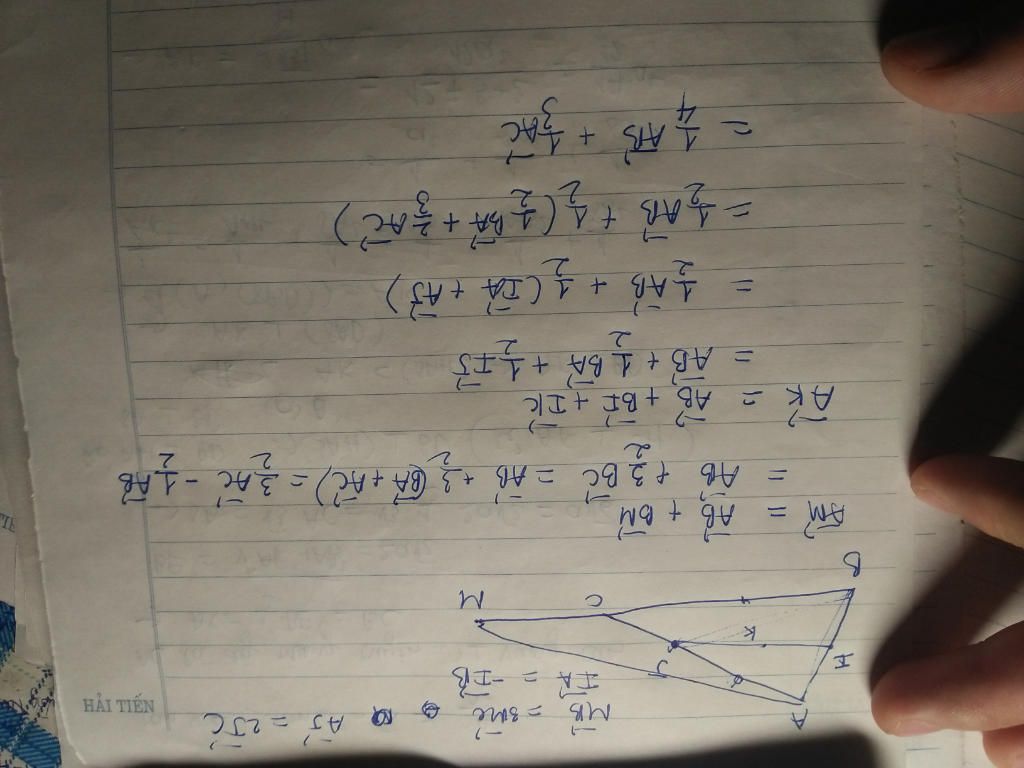 HẢI TIẾN
$\overrightarrow{MB} = 3\overrightarrow{MC}$ $\overrightarrow{AJ} = 2\overrightarrow{JC}$
$\overrightarrow{IA} = -\overrightarrow{IB}$
A
I
J
K
B
C
M
$\overrightarrow{AM} = \overrightarrow{AB} + \overrightarrow{BM}$
$= \overrightarrow{AB} + \frac{3}{2}\overrightarrow{BC} = \overrightarrow{AB} + \frac{3}{2}(\overrightarrow{BA} + \overrightarrow{AC}) = \frac{3}{2}\overrightarrow{AC} - \frac{1}{2}\overrightarrow{AB}$
$\overrightarrow{AK} = \overrightarrow{AB} + \overrightarrow{BI} + \overrightarrow{IK}$
$= \overrightarrow{AB} + \frac{1}{2}\overrightarrow{BA} + \frac{1}{2}\overrightarrow{IJ}$
$= \frac{1}{2}\overrightarrow{AB} + \frac{1}{2}(\overrightarrow{IA} + \overrightarrow{AJ})$
$= \frac{1}{2}\overrightarrow{AB} + \frac{1}{2}(\frac{1}{2}\overrightarrow{BA} + \frac{2}{3}\overrightarrow{AC})$
$= \frac{1}{4}\overrightarrow{AB} + \frac{1}{3}\overrightarrow{AC}$